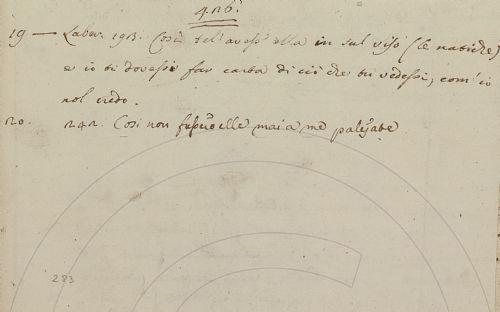 19 — Laber. Così tel'avess'ella in sul viso (le natiche)
e io ti dovessi far carta di ciò che tu vedessi, com'io
nol credo.
20. 242. Così non fussero elle mai a me palesate
283